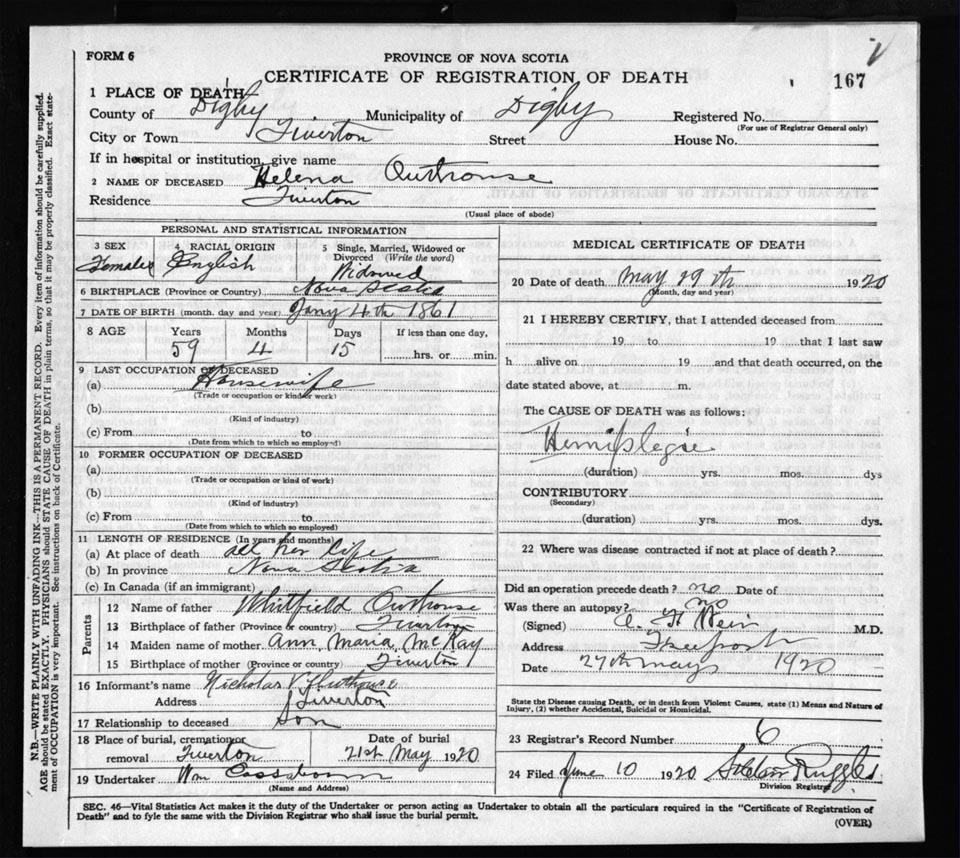 FORM 6
PROVINCE OF NOVA SCOTIA
CERTIFICATE OF REGISTRATION OF DEATH
167
1 PLACE OF DEATH
County of Digby Municipality of Digby Registered No.
(For use of Registrar General only)
City or Town Tiverton Street House No.
If in hospital or institution, give name
2 NAME OF DECEASED Helena Outhouse
Residence Tiverton
(Usual place of abode)
PERSONAL AND STATISTICAL INFORMATION
3 SEX 4 RACIAL ORIGIN 5 Single, Married, Widowed or Divorced (Write the word)
Female English Widowed
6 BIRTHPLACE (Province or Country) Nova Scotia
7 DATE OF BIRTH (month, day and year) Jany 4th 1861
8 AGE Years Months Days If less than one day,
59 4 15 hrs. or min.
9 LAST OCCUPATION OF DECEASED
(a) Housewife
(Trade or occupation or kind or work)
(b)
(Kind of industry)
(c) From to
(Date from which to which so employed)
10 FORMER OCCUPATION OF DECEASED
(a)
(Trade or occupation or kind of work)
(b)
(Kind of industry)
(c) From to
(Date from which to which so employed)
11 LENGTH OF RESIDENCE (In years and months)
(a) At place of death all her life
(b) In province Nova Scotia
(c) In Canada (if an immigrant)
Parents
12 Name of father Whitfield Outhouse
13 Birthplace of father (Province or country) Tiverton
14 Maiden name of mother Ann, Maria, McKay
15 Birthplace of mother (Province or country) Tiverton
16 Informant's name Nicholas Outhouse
Address Tiverton
17 Relationship to deceased Son
18 Place of burial, cremation or removal Tiverton Date of burial 21st May 1920
19 Undertaker Wm Cossaboom
(Name and Address)
MEDICAL CERTIFICATE OF DEATH
20 Date of death May 19th 1920
(Month, day and year)
21 I HEREBY CERTIFY, that I attended deceased from
19 to 19 that I last saw
h alive on 19 and that death occurred, on the
date stated above, at m.
The CAUSE OF DEATH was as follows:
Hemiplegia
(duration) yrs. mos. dys
CONTRIBUTORY
(Secondary)
(duration) yrs. mos. dys.
22 Where was disease contracted if not at place of death?
Did an operation precede death? no Date of
Was there an autopsy? no
(Signed) Weir M.D.
Address Freeport
Date 27th May 1920
State the Disease causing Death, or in death from Violent Causes, state (1) Means and Nature of
Injury, (2) whether Accidental, Suicidal or Homicidal.
23 Registrar's Record Number 6
24 Filed June 10 1920 Ruggles
Division Registrar
SEC. 46—Vital Statistics Act makes it the duty of the Undertaker or person acting as Undertaker to obtain all the particulars required in the "Certificate of Registration of
Death" and to fyle the same with the Division Registrar who shall issue the burial permit.
(OVER)
N.B.—WRITE PLAINLY WITH UNFADING INK—THIS IS A PERMANENT RECORD. Every item of information should be carefully supplied.
AGE should be stated EXACTLY. PHYSICIANS should STATE CAUSE OF DEATH in plain terms, so that it may be properly classified. Exact state-
ment of OCCUPATION is very important. See instructions on back of Certificate.